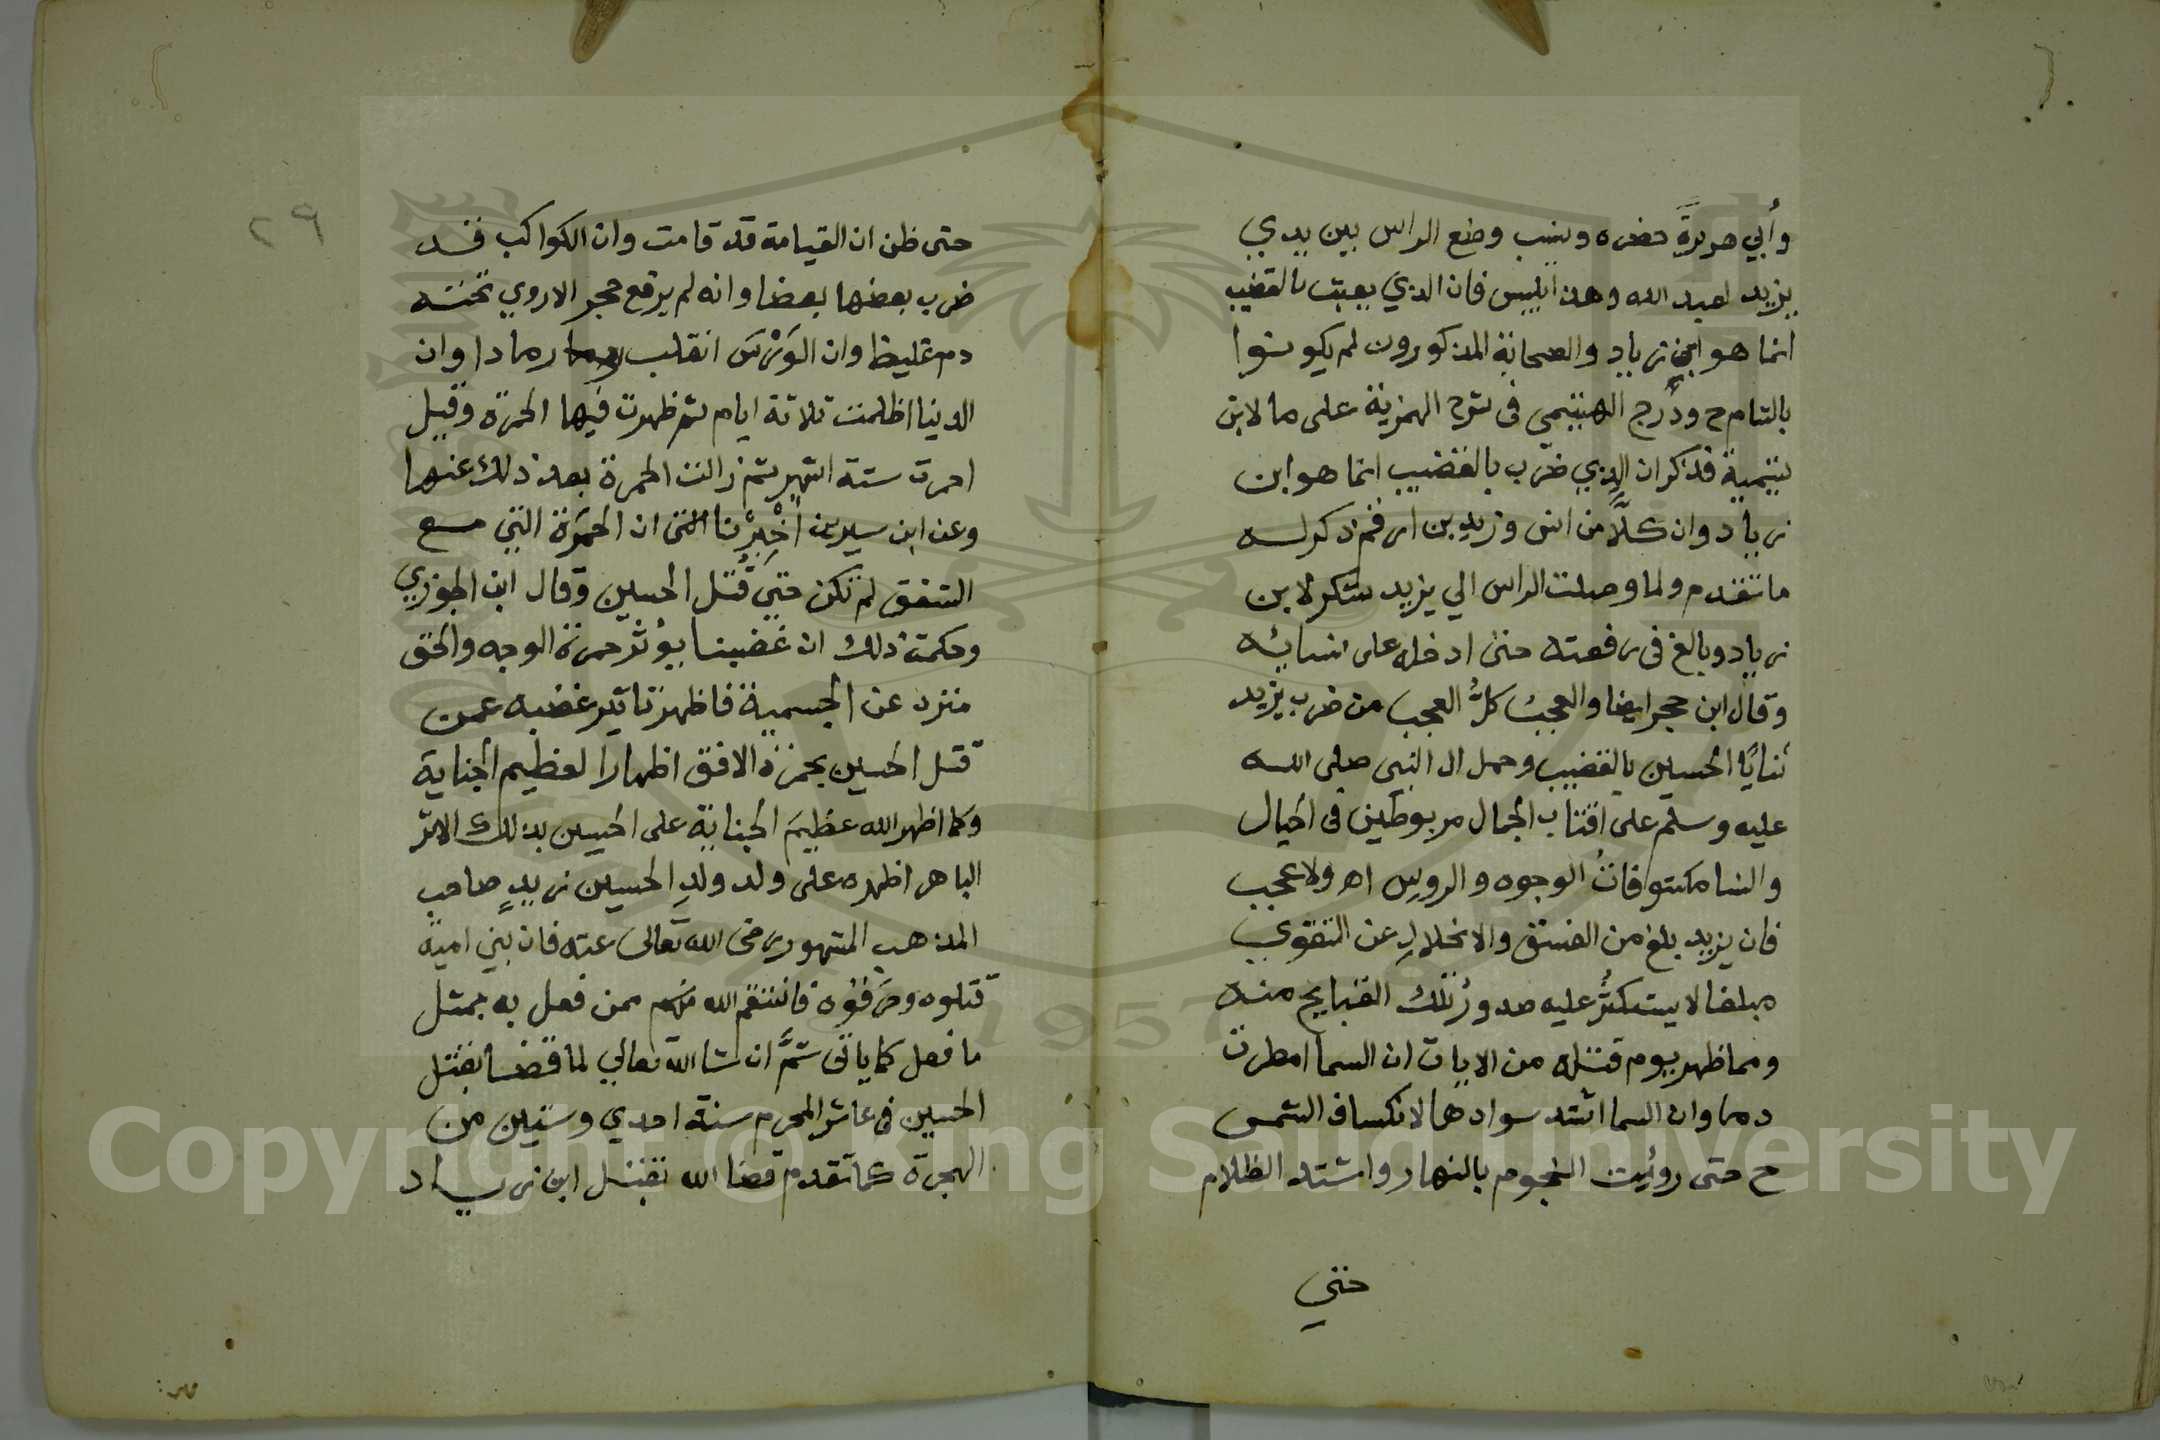 وأبي هريرة حضره وينب وضع الراس بين يدي
يزيد لعبد الله وهذا تلبيس فان الذي يعبث بالقضيب
انما هو ابن زياد والصحابة المذكورون لم يكونوا
بالشام ح ودرج الهيتمي في شرح الهمزية على ما لابن
تيمية فذكر ان الذي ضرب بالقضيب انما هو ابن
زياد وان كلاً من انس وزيد بن ارقم ذكر له
ما تقدم ولما وصلت الراس الي يزيد شكر لابن
زياد وبالغ في رفعته حتى ادخله على نسايه
وقال ابن حجر ايضا والعجبُ كلُّ العجب من ضرب يزيد
ثنايًا الحسين بالقضيب وحمل ال النبي صلى الله
عليه وسلم على اقتاب الجمال مربوطين في الحبال
والنسا مكشوفاتُ الوجوه والروس اه ولا عجب
فان يزيد بلغ من الفسق والانحلالِ عن التقوي
مبلغا لا يستكثُر عليه صدورُ تلك القبايح منه
ومما ظهر يوم قتله من الايات ان السما امطرت
دما وان السما اشتد سوادها لانكساف الشمس
ح حتى روئيت النجوم بالنهار واشتد الظلام
حتي
٢٩
حتى ظن ان القيامة قد قامت وان الكواكب قد
ضرب بعضها بعضا وانه لم يرفع حجر الا روي تحته
دم غليظ وان الوَرْسَ انقلب رمادا وان
الدنيا اظلمت ثلاثة ايام ثم ظهرت فيها الحمرة وقيل
احمرت ستة اشهر ثم زالت الحمرة بعد ذلك عنها
وعن ابن سيرين اُخْبِرْنا ان الحمرة التي مع
الشفق لم تكن حتي قُتل الحسين وقال ابن الجوزي
وحكمة ذلك ان غضبنا يوُثر حمرة الوجه والحق
منزه عن الجسمية فاظهر تاثير غضبه عمن
قتل الحسين بحمرة الافق اظهارا لعظيم الجناية
وكما اظهر الله عظيمَ الجناية على الحسين بذلك الاثر
الباهر اظهره على ولد ولدِ الحسين زيدٍ صاحب
المذهب المشهور رضى الله تعالى عنه فان بني امية
قتلوه وحَرَّقوه فانتقم الله منهم ممن فعل به بمثل
ما فعل كما ياتى ثَمَّ ان شا الله تعالي لما قضا بقتل
الحسين في عاشر المحرم سنة احدي وستين من
الهجرة كما تقدم قضا الله بقتل ابن زياد
1957
Copyright © King Saud University